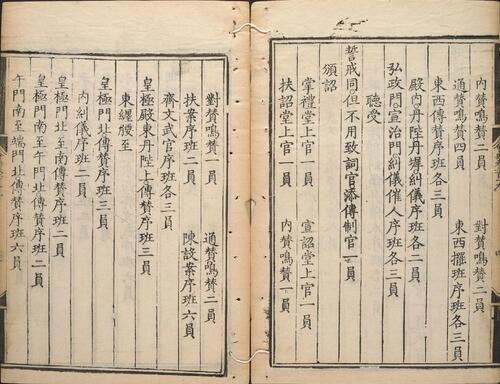 內贊鳴贊二員　對贊鳴贊二員
通贊鳴贊四員　東西擺班序班各三員
東西傳贊序班各三員
殿內丹陛丹墀糾儀序班各二員
弘政門宣治門糾儀催人序班各三員
聽受
誓戒同但不用致詞官添傳制官一員
頒詔
掌禮堂上官一員　宣詔堂上官一員
扶詔堂上官一員　內贊鳴贊一員
對贊鳴贊一員　通贊鳴贊二員
扶案序班二員　陳設案序班六員
齋文武官序班各三員
皇極殿東丹陛上傳贊序班三員
東纏腰至
皇極門北傳贊序班三員
內糾儀序班二員
皇極門北至南傳贊序班二員
皇極門南至午門北傳贊序班二員
午門南至端門北傳贊序班六員